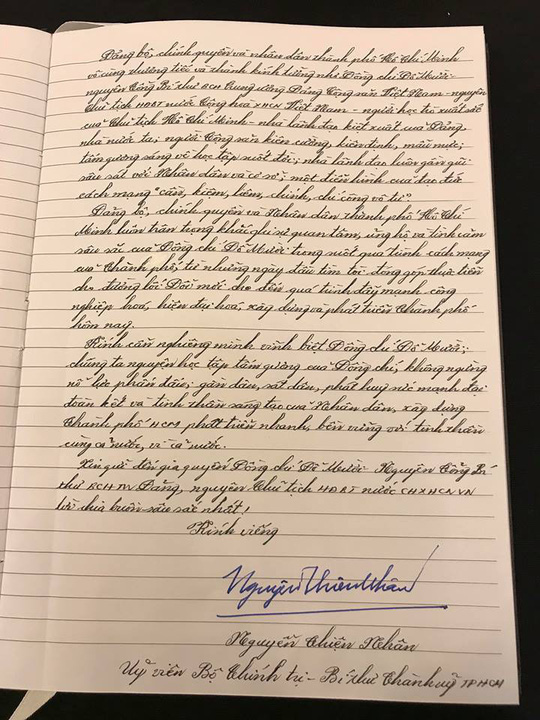 Đảng bộ, chính quyền và nhân dân thành phố Hồ Chí Minh
vô cùng thương tiếc và thành kính tưởng nhớ Đồng chí Đỗ Mười -
nguyên Tổng Bí thư BCH Trung ương Đảng Cộng sản Việt Nam - nguyên
Chủ tịch HĐBT nước Cộng hòa XHCN Việt Nam - người học trò xuất sắc
của Chủ tịch Hồ Chí Minh - nhà lãnh đạo kiệt xuất của Đảng,
nhà nước ta, người Cộng sản kiên cường, kiên định, mẫu mực;
tấm gương sáng về học tập suốt đời; nhà lãnh đạo luôn gần gũi
sâu sát với Nhân dân và cơ sở; một điển hình của đạo đức
cách mạng "cần, kiệm, liêm, chính, chí công vô tư".
Đảng bộ, chính quyền và Nhân dân thành phố Hồ Chí
Minh luôn trân trọng khắc ghi sự quan tâm, ủng hộ và tình cảm
sâu sắc của Đồng chí Đỗ Mười trong suốt quá trình cách mạng
của Thành phố, từ những ngày đầu tìm tòi đóng góp thực tiễn
cho đường lối Đổi mới cho đến quá trình đẩy mạnh công
nghiệp hoá, hiện đại hoá, xây dựng và phát triển Thành phố
hôm nay.
Kính cẩn nghiêng mình vĩnh biệt Đồng chí Đỗ Mười;
chúng ta nguyện học tập tấm gương của Đồng chí, không ngừng
nỗ lực phấn đấu; gần dân, sát dân, phát huy sức mạnh đại
đoàn kết và tinh thần sáng tạo của Nhân dân, xây dựng
Thành phố HCM phát triển nhanh, bền vững với tinh thần
cùng cả nước, vì cả nước.
Xin gửi đến gia quyến Đồng chí Đỗ Mười - Nguyên Tổng Bí
thư BCHTW Đảng, nguyên Chủ tịch HĐBT nước CHXHCNVN
lời chia buồn sâu sắc nhất!
Kính viếng
Nguyễn Thiện Nhân
Nguyễn Thiện Nhân
Uỷ viên Bộ Chính trị - Bí thư Thành uỷ TPHCM